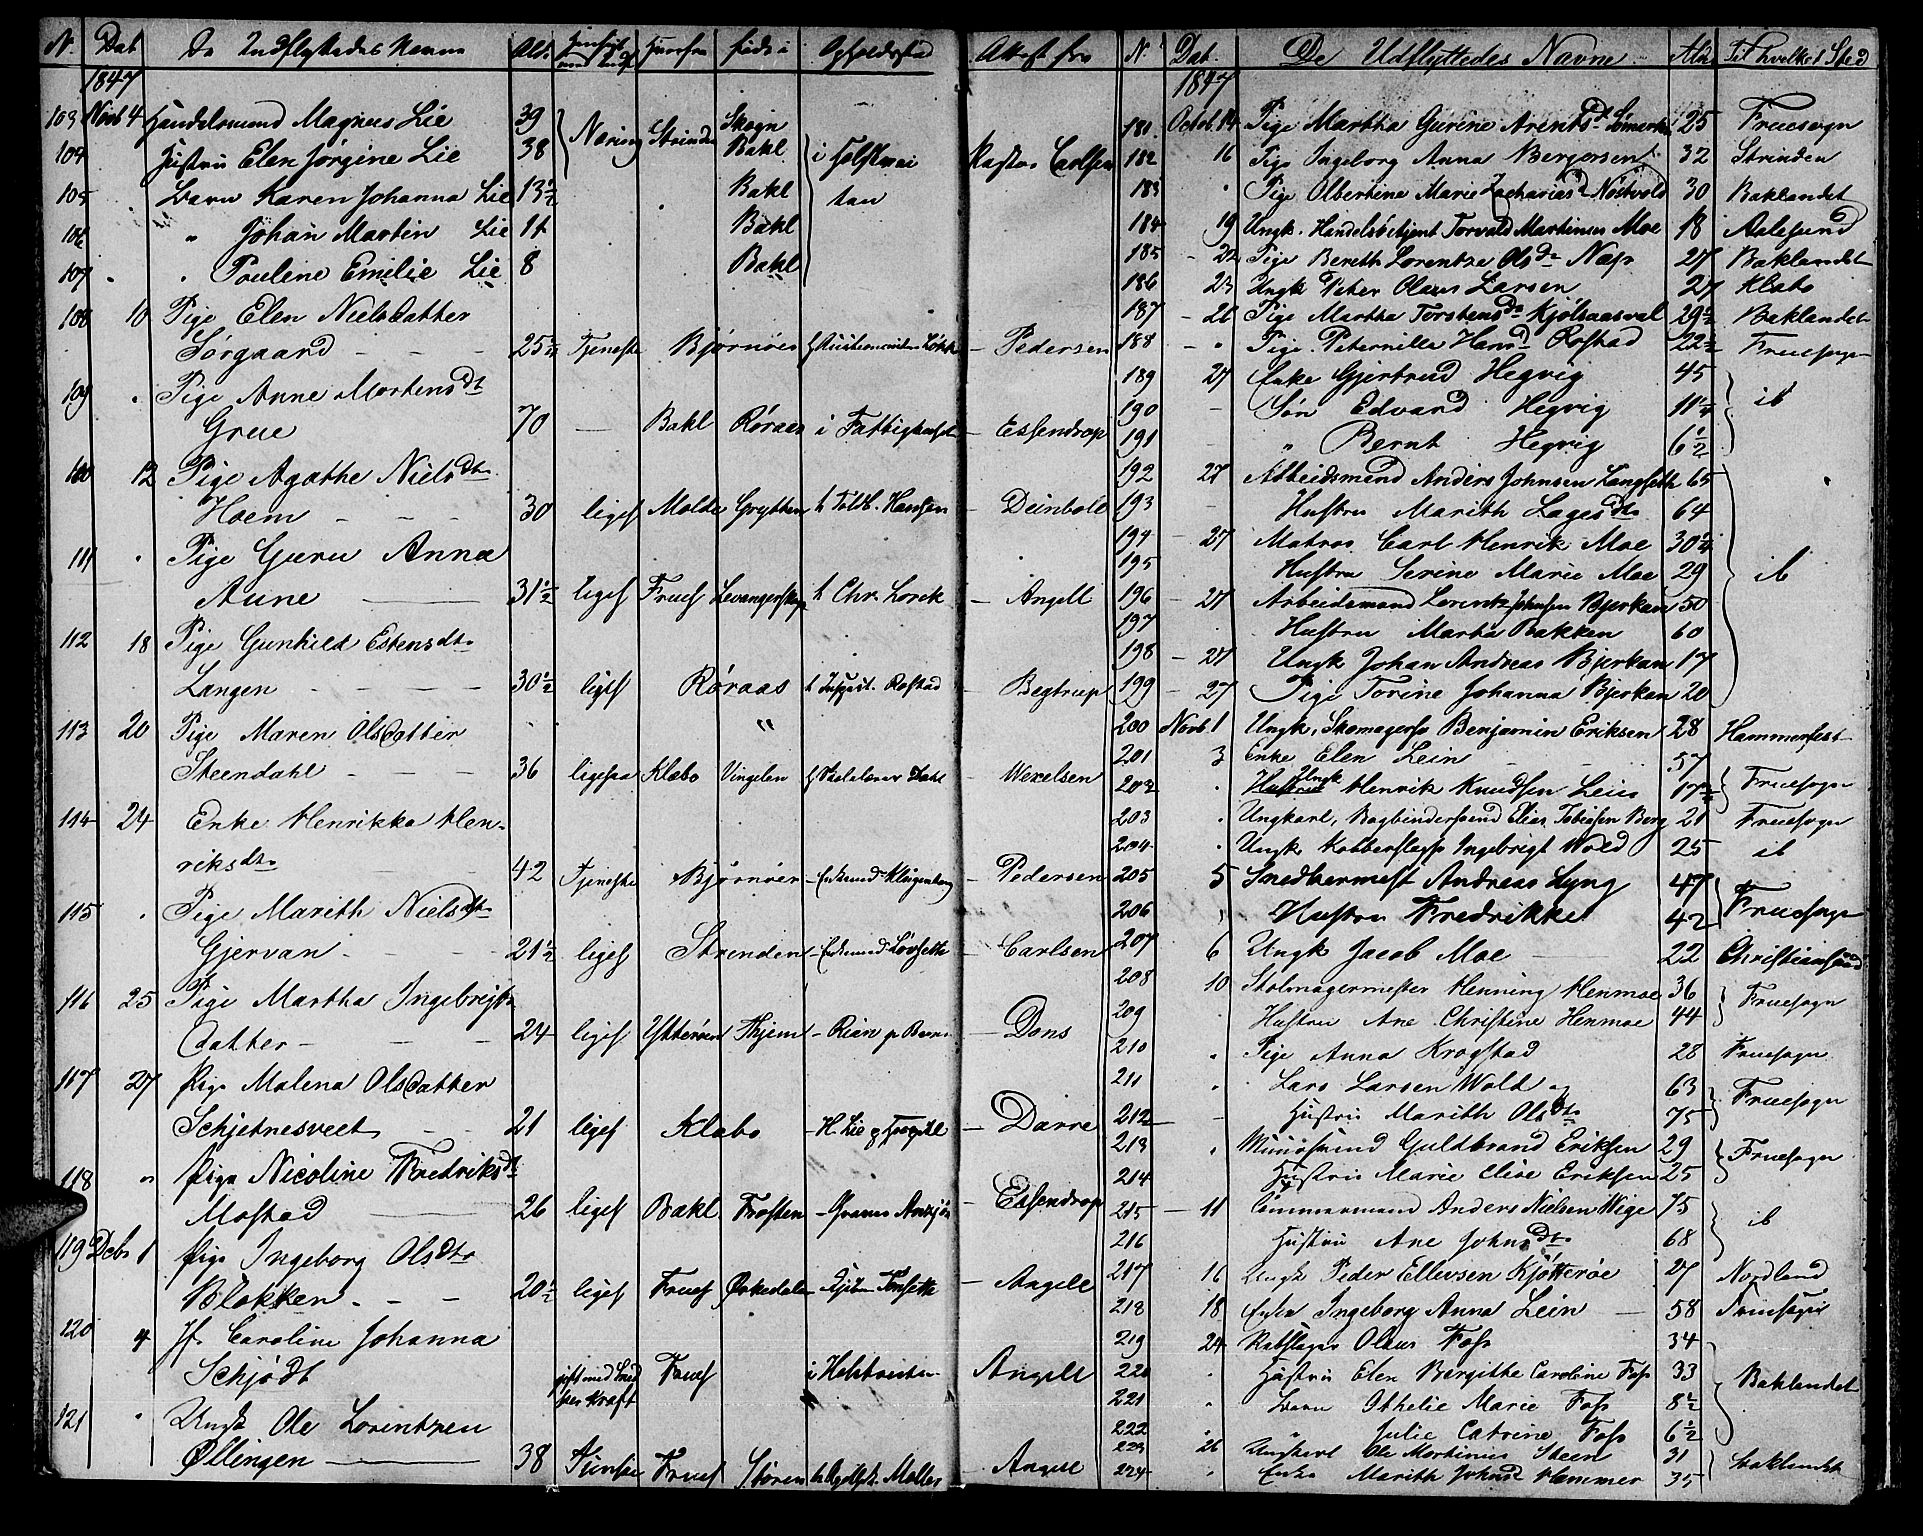 N. Dat De Indflyttedes Navne Ald. Hvorfra født i Opholdssted Attest fra
1847
103 Novb 4 Handelsmand Magnus Lie 39 Næring Strinden Skogn
104 Hustru Elen Jørgine Lie 38 Bakl i Carlsen
105 Barn Karen Johanna Lie 13 1/2 Bakl
106 " Johan Martin Lie 11 Bakl
107 " Pouline Emilie Lie 8 Bakl
108 10 Pige Elen Nielsdatter
Sørgaard 25 1/2 Tjeneste Bjørnør - Pedersen
109 " Pige Anne Mortensdt
Grue 70 - Bakl Røraas i Fattighuset - Essendrop
110 12 Pige Agathe Nielsdtr
Hoem 30 liges Molde Grytten h Toldb. Hansen - Deinboll
111 " Pige Guru Anna
Aune 31 1/2 ligef Fruef Levanger h Chr. Lorck - Angell
112 18 Pige Gunhild Estensdtr
Langen 30 1/2 ligef Røraas h Rofstad - Begtrup
113 20 Pige Maren Olsdatter "
Steendahl 36 ligesaa Klæbo Vingelen - Wexelsen
114 24 Enke Henrikka Hen-
riksdtr 42 Tjeneste Bjørnøer - Klingenberg - Pedersen
115 " Pige Marith Nielsdtr
Gjervan 21 1/2 ligef Strinden - Carlsen
116 25 Pige Martha Ingebrigts
datter 24 ligef Ytterøen - Dons
117 27 Pige Malena Olsdatter
Schjetnesveet 21 ligef Klæbo - H. Lie - Darre
118 " Pige Nicoline Fredriksdt
Mostad 26 ligef Bakl Frosten - Essendrop
119 Decbr 1 Pige Ingeborg Olsdtr
Blokken 20 1/2 ligef Fruef Ørkedalen - Angell
120 4 Jf. Caroline Johanna
Schjødt Fruef Angell
121 " Ungk Ole Lorentzen
Øllingen 38 Fruef Støren Angell
N. Dat. De Udflyttedes Navne Ald. Til hvilket Sted
1847
181. Octob. 14 Pige Martha Gurine Arentsdt 25 Fruesogn
182 16 Pige Ingeborg Anna Bergersen 32 Strinden
183 " Pige Olbertine Marie Zachariasd Nøstvold 30 Baklandet
184 19 Ungk. Handelsbetjent Torvald Martinus Moe 18 Aalesund
185 - 22 Pige Bereth Lorentze Olsdtr Næss 27 Baklandet
186 23 Ungk Peter Olaus Larsen 27 Klæbo
187 - 26 Pige Martha Torstensdtr Kjølsaasval 29 1/2 Baklandet
188 - " Pige Peternille Hansd Rofstad 22 1/2 Fruesogn
189 27 Enke Gjertrud Hegvig 45
190 - Søn Edvard Hegvig 11 1/4 ib
191 " Bernt Hegvig 6 1/2
192 27 Arbeidsmand Anders Johnsen Langseth 65
193 Hustru Marith Lagesdtr 64
194 - 27 Matros Carl Henrik Moe 30 1/4
195 Hustru Serine Marie Moe 29 ib
196 - 27 Arbeidsmand Lorentz Johnsen Bjerkan 50
197 Hustru Marta Bakken 60
198 - 27 Ungk Johan Andreas Bjerkan 17
199 - 27 Pige Torine Johanna Bjerkan 20
200 Novb. 1 Ungk, Skomagersv Benjamin Eriksen 28 Hammerfest
201 3 Enke Elen Lein 57
202 " Ungk Henrik Knudsen Lein 17 1/2 Fruesogn
203 " Ungkarl, Bogbindersvend Elias Tobiassen Berg 21 Fruesogn
204 " Ungk Kobberslager Ingebrigt Wold 25 ib
205 5 Snedkermest Andreas Lyng 47
206 " Hustru Fredrikke 42 Fruesogn
207 6 Ungk Jacob Moe 22 Christiansund
208 10 Stolmagermester Henning Henmoe 36
209 Hustru Ane Christine Henmoe 44 Fruesogn
210 " Pige Anna Krogstad 28 Fruesogn
211 " Lars Larsen Wold og 63
212 - Hustru Marith Olsdtr 75 Fruesogn
213 " Guldbrand Eriksen 29
214 Hustru Marie Elise Eriksen 25 Fruesogn
215 - 11 Tømmermand Anders Nielsen Wige 75
216 Hustru Ane Johnsdtr 68 ib
217 16 Ungk Peder Ellevsen Kjøtterøe 27 Nordland
218 18 Enke Ingeborg Anna Lein 58 Fruesogn
219 24 Rebslager Olaus Foss 34
220 " Hustru Elen Bergithe Caroline Foss 33 Baklandet
221 " Barn Othelie Marie Foss 8 1/2
222 " Julie Catrine Foss 6 1/2
223 26 Ungkarl Ole Martinus Steen 31
224 " Enke Marith Johnsd Hammer 35 Baklandet